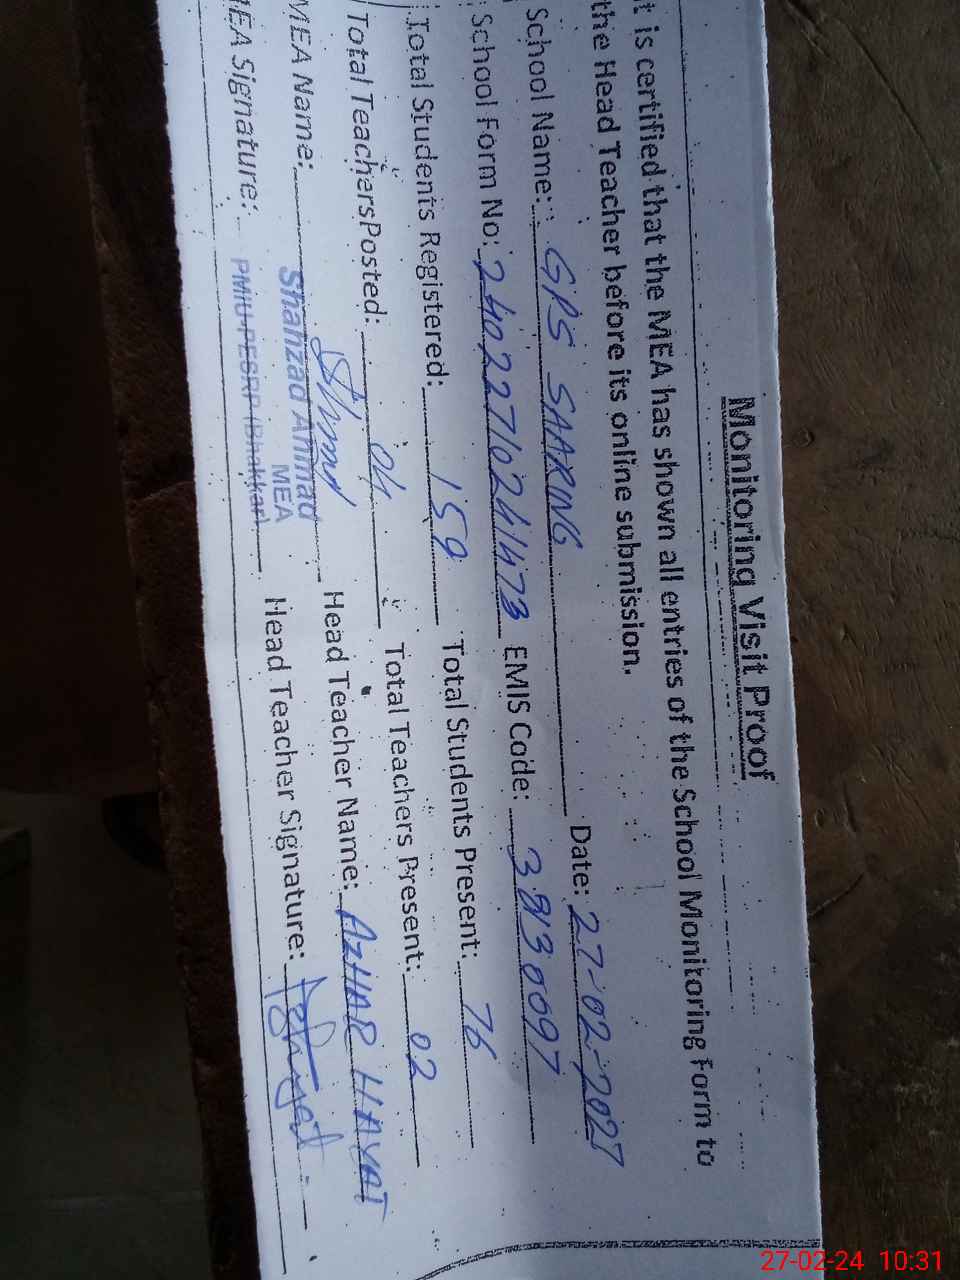 Monitoring Visit Proof
t is certified that the MEA has shown all entries of the School Monitoring Form to
the Head Teacher before its online submission.
School Name: GPS SAARING Date: 27-02-2027
School Form No: 240227/0241473 EMIS Code: 38130097
Total Students Registered: 159 Total Students Present: 76
Total Teachers Posted: 04 Total Teachers Present: 02
MEA Name: Head Teacher Name: AZHAR HAYAT
Shahzad Ahmad
MEA
PMIU-PESRP (Bhakkar)
MEA Signature: Head Teacher Signature:
27-02-24 10:31